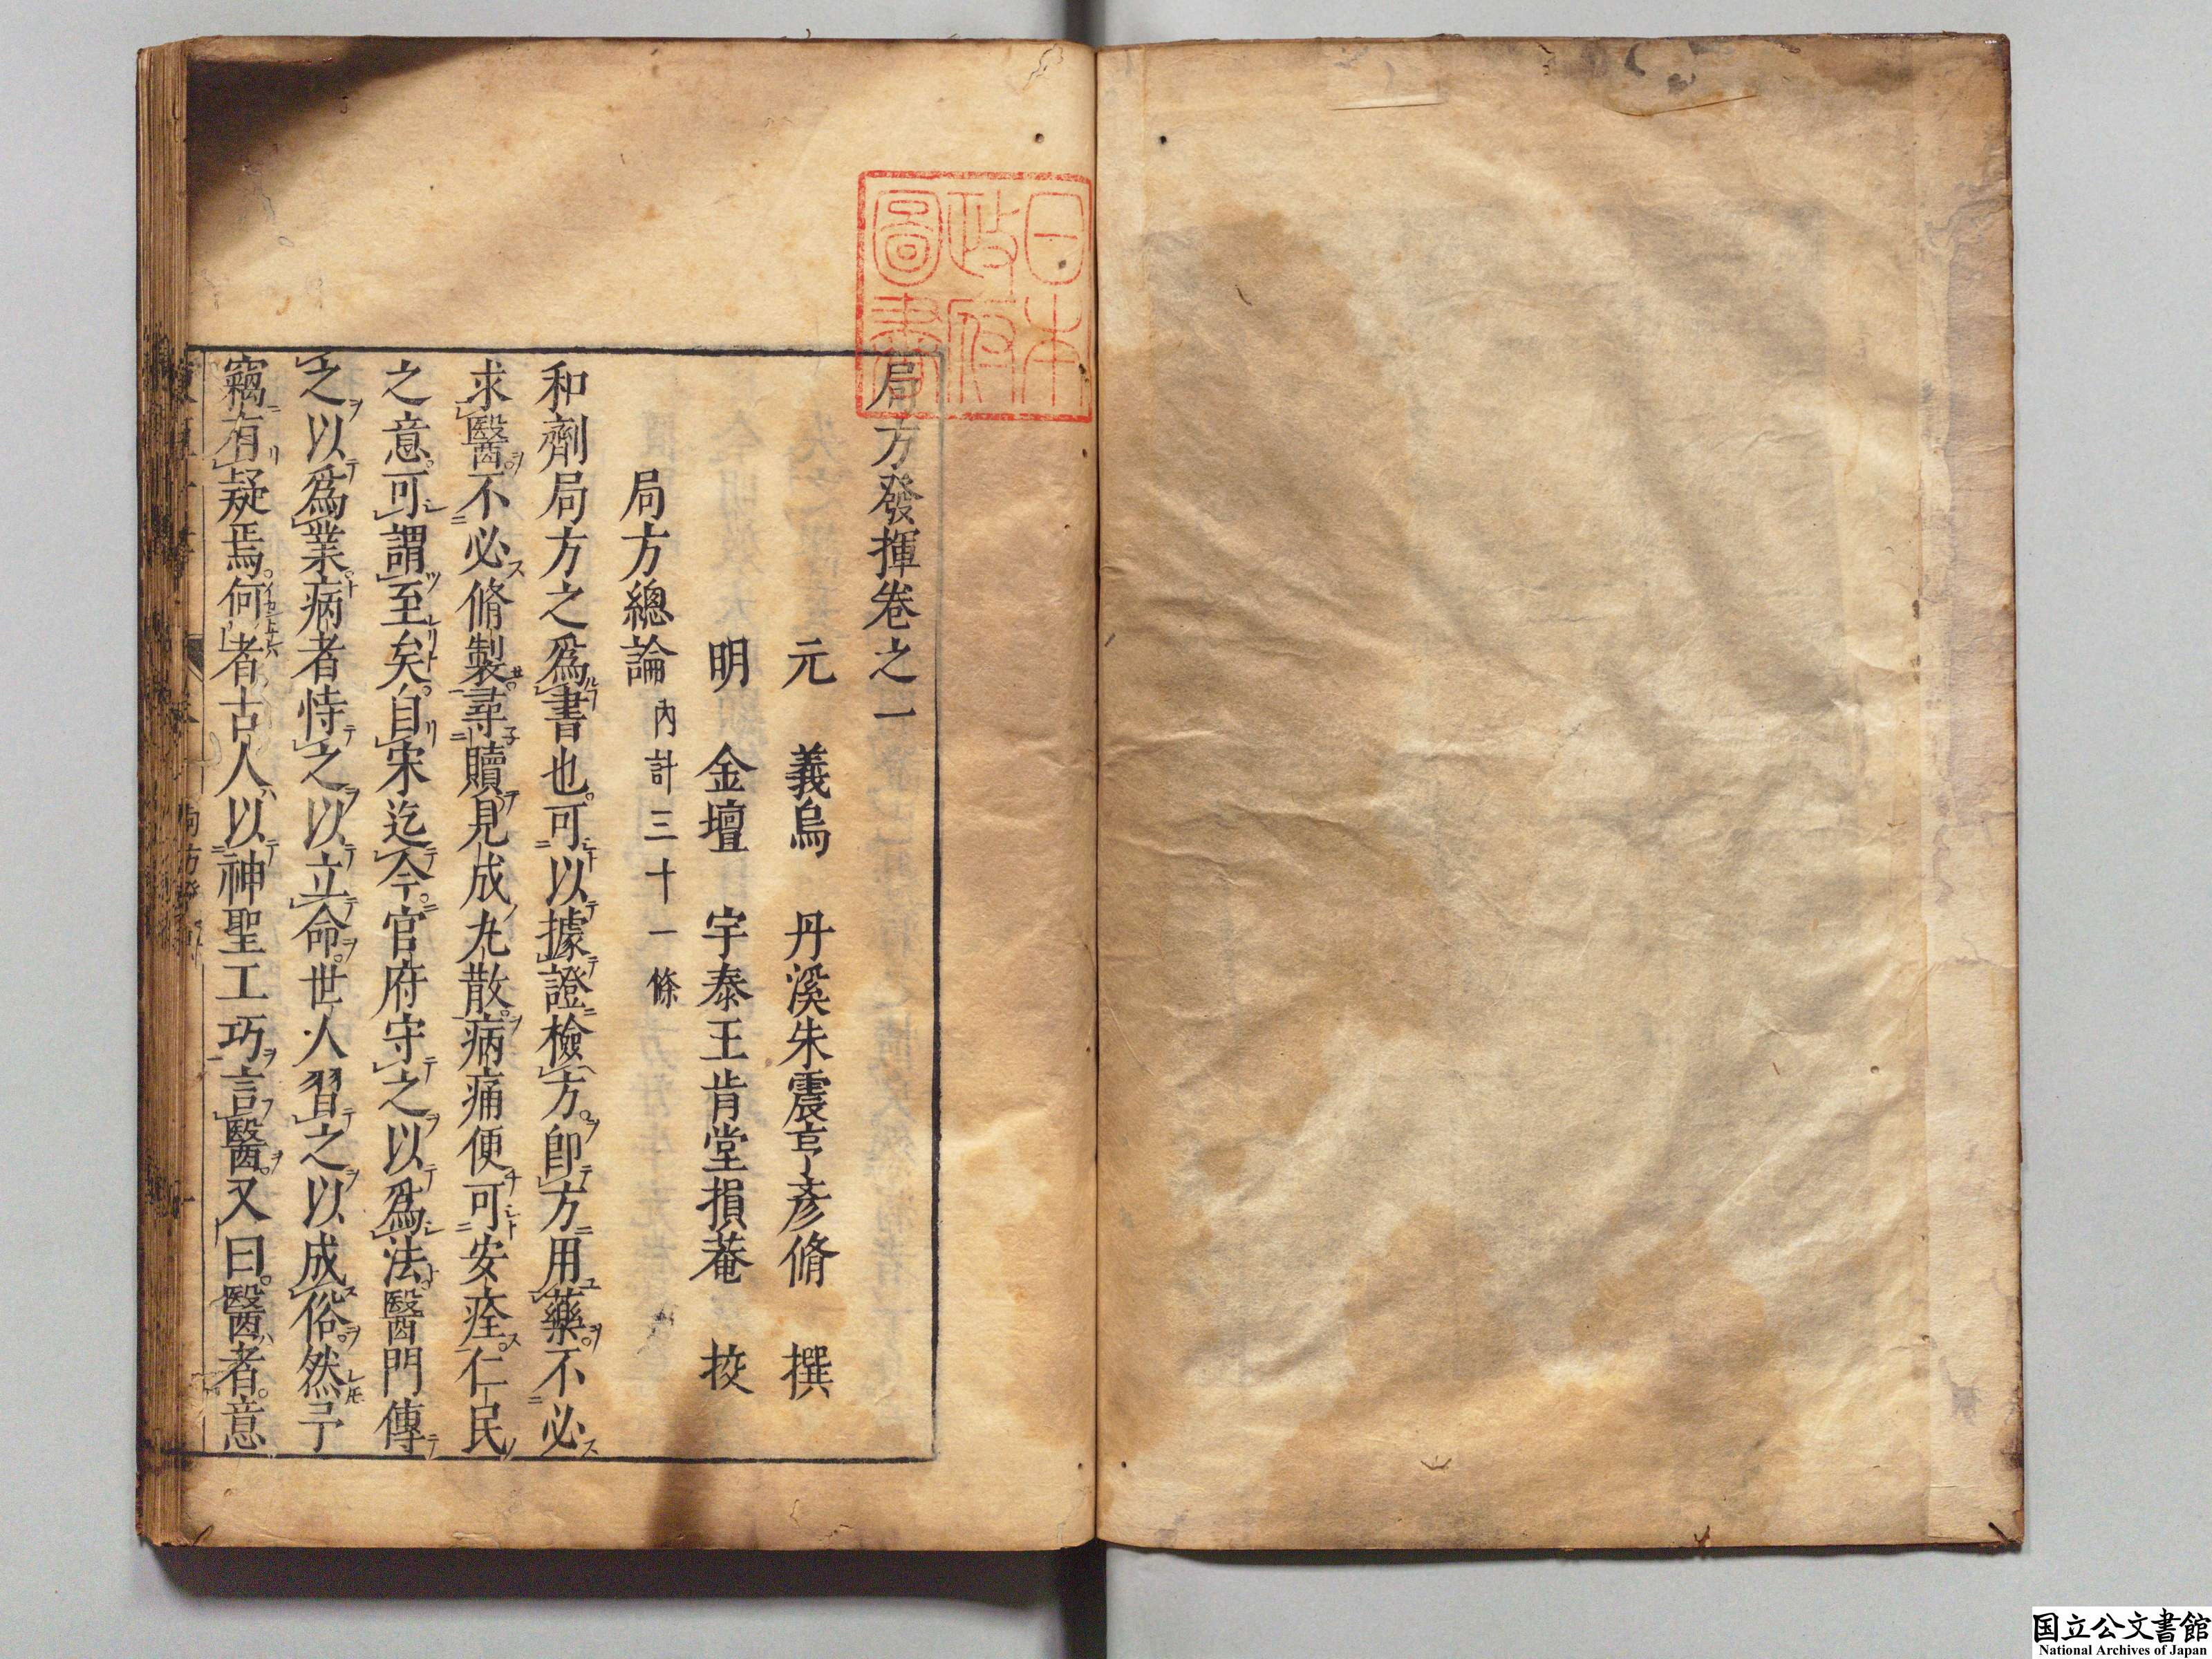 日本
政府
圖書
局方發揮卷之一
元　義烏　丹溪朱震亨彥脩　撰
明　金壇　宇泰王肯堂損菴　挍
局方總論 內計三十一條
和劑局方之爲書也可以據證檢方卽方用藥不必
求醫不必脩製尋贖見成丸散病痛便可安痊仁民
之意可謂至矣自宋迄今官府守之以爲法醫門傳
之以爲業病者恃之以立命世人習之以成俗然予
竊有疑焉何者古人以神聖工巧言醫又曰醫者意
国立公文書館
National Archives of Japan